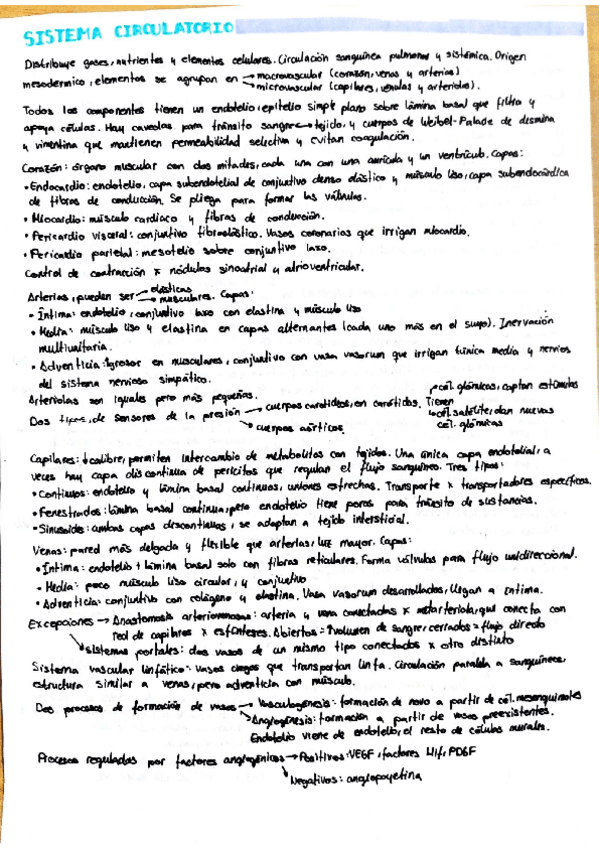 SISTEMA CIRCULATORIO
Distribuye gases, nutrientes y elementos celulares. Circulación sanguínea pulmonar y sistémica. Origen
mesodermico, elementos se agrupan en → macrovascular (corazón, venas y arterias)
→ microvascular (capilares, vénulas y arteriolas).
Todos los componentes tienen un endotelio: epitelio simple plano sobre lámina basal que filtra y
apoya células. Hay caveolas para tránsito sangre↔tejido, y cuerpos de Weibel-Palade de desmina
y vimentina que mantienen permeabilidad selectiva y evitan coagulación.
Corazón: órgano muscular con dos mitades, cada una con una aurícula y un ventrículo. Capas:
• Endocardio: endotelio, capa subendotelial de conjuntivo denso elástico y músculo liso, capa subendocárdica
de fibras de conducción. Se pliega para formar las válvulas.
• Miocardio: músculo cardíaco y fibras de conducción.
• Pericardio visceral: conjuntivo fibroelástico. Vasos coronarios que irrigan miocardio.
• Pericardio parietal: mesotelio sobre conjuntivo laxo.
Control de contracción x nódulos sinoatrial y atrioventricular.
Arterias, pueden ser → elásticas
→ musculares. Capas:
• Íntima: endotelio, conjuntivo laxo con elastina y músculo liso
• Media: músculo liso y elastina en capas alternantes (cada uno más en el suyo). Inervación
multiunitaria.
• Adventicia: ↑grosor en musculares, conjuntivo con vasa vasorum que irrigan túnica media y nervios
del sistema nervioso simpático.
Arteriolas son iguales pero más pequeñas.
Dos tipos de sensores de la presión → cuerpos carotídeos, en carótidas. Tienen → cél. glómicas, captan estímulos
→ cél. satélite, dan nuevas
cél. glómicas
→ cuerpos aórticos
Capilares: ↓calibre, permiten intercambio de metabolitos con tejidos. Una única capa endotelial, a
veces hay capa discontinua de pericitos que regulan el flujo sanguíneo. Tres tipos:
• Continuos: endotelio y lámina basal continuos, uniones estrechas. Transporte x transportadores específicos.
• Fenestrados: lámina basal continua, pero endotelio tiene poros para tránsito de sustancias.
• Sinusoide: ambas capas discontinuas, se adaptan a tejido intersticial.
Venas: pared más delgada y flexible que arterias, luz mayor. Capas:
• Íntima: endotelio + lámina basal solo con fibras reticulares. Forma válvulas para flujo unidireccional.
• Media: poco músculo liso circular, y conjuntivo
• Adventicia: conjuntivo con colágeno y elastina. Vasa vasorum desarrollados, llegan a íntima.
Excepciones → Anastomosis arteriovenosas: arteria y vena conectadas x metarteriola, que conecta con
red de capilares x esfínteres. Abiertos = ↑volumen de sangre, cerrados = flujo directo
→ sistemas portales: dos vasos de un mismo tipo conectados x otro distinto
Sistema vascular linfático: vasos ciegos que transportan linfa. Circulación paralela a sanguínea,
estructura similar a venas, pero adventicia con músculo.
Dos procesos de formación de vasos → Vasculogénesis: formación de novo a partir de cél. mesenquimales
→ Angiogénesis: formación a partir de vasos preexistentes.
Endotelio viene de endotelio, el resto de células murales.
Procesos regulados por factores angiogénicos → Positivos: VEGF, factores HIF, PDGF
→ Negativos: angiopoyetina